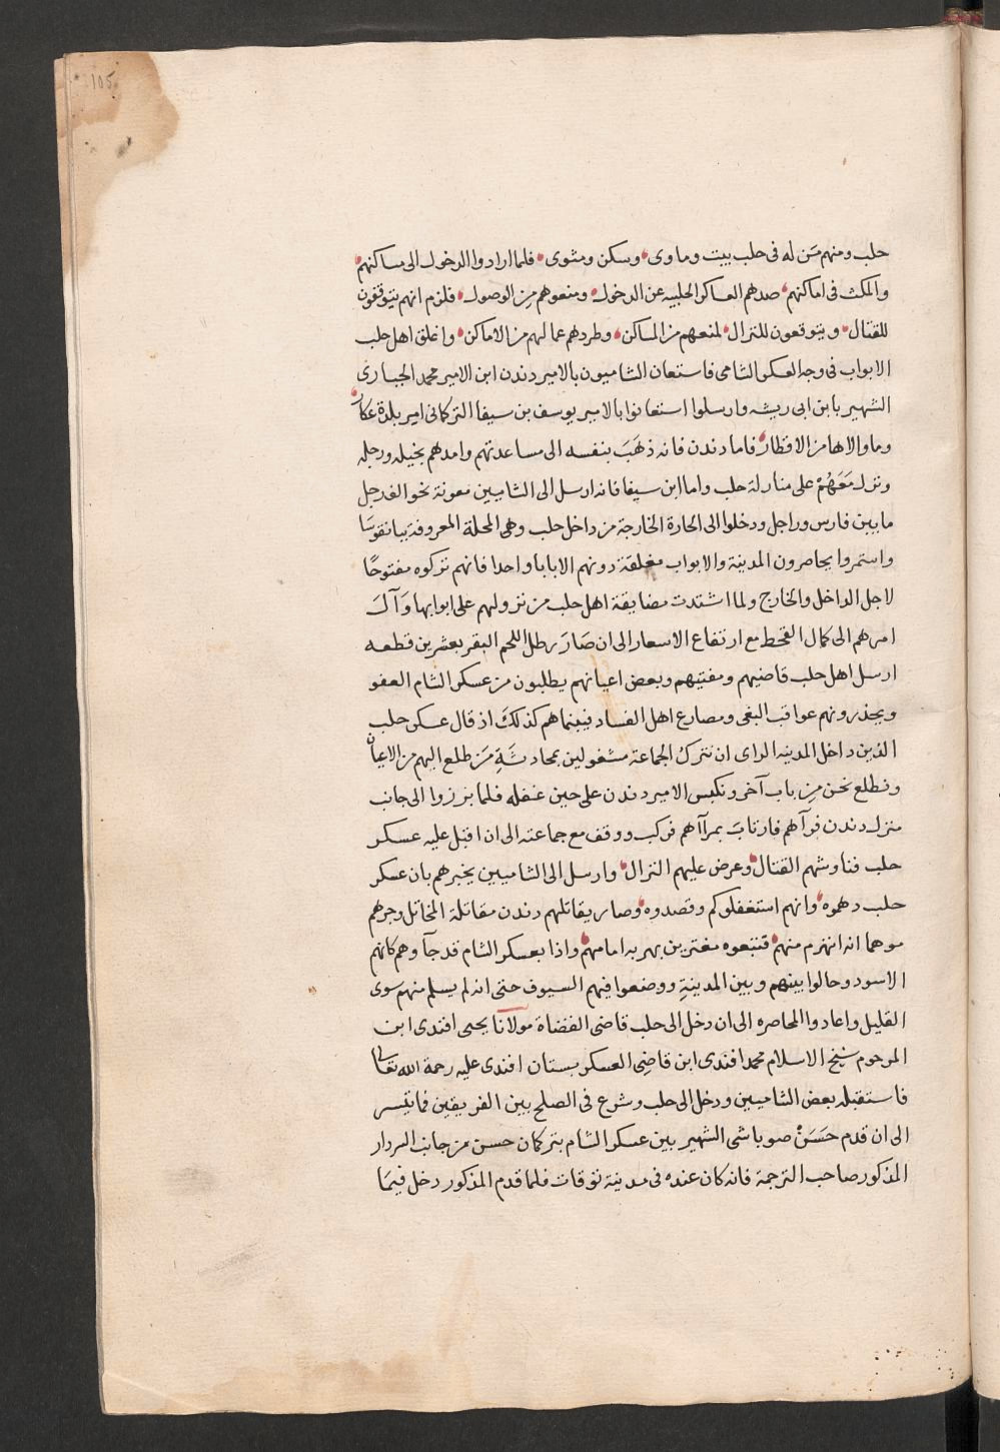 105
حلب ومنهم مَن له فى حلب بيت وماوى، وسكن ومثوى، فلما ارادوا الدخول الى مساكنهم،
والمكث فى اماكنهم، صدهم العساكر الحلبيه عن الدخول، ومنعوهم من الوصول، فلزم انهم يتوقفون
للقتال، ويتوقعون للنزال، لمنعهم من المساكن، وطردهم عما لهم من الاماكن، واغلق اهل حلب
الابواب فى وجه العسكر الشامى فاستعان الشاميون بالامير دندن ابن الامير محمد الجبارى
الشهير بابن ابى ريشه وارسلوا استعانوا بالامير يوسف بن سيفا التركمانى امير بلدة عكار،
وما والاها من الاقطار، فاما دندن فانه ذهَبَ بنفسه الى مساعدتهم وامدهم بخيله ورجله
ونزل مَعَهُمْ على منازلة حلب واما ابن سيفا فانه ارسل الى الشاميين معونة نحو الف رجل
ما بين فارس وراجل ودخلوا الى الحارة الخارجة من داخل حلب وهى المحلة المعروفة ببانقوسَا
واستمروا يحاصرون المدينة والابواب مغلقة دونهم الا بابا واحدا فانهم تركوه مفتوحًا
لاجل الداخل والخارج ولما اشتدت مضايقة اهل حلب من نزولهم على ابوابها وَآلَ
امرهم الى كمال القحط مع ارتفاع الاسعار الى ان صَارَ رطل اللحم البقر بعشرين قطعه
ارسل اهل حلب قاضيهم ومفتيهم وبعض اعيانهم يطلبون من عسكر الشام العفو
ويحذرونهم عواقب البغى ومصارع اهل الفساد فبينماهم كذلكَ اذ قال عسكر حلب
الذين داخل المدينه الراى ان نتركُ الجماعة مشغولين بمحادثَةِ مَن طلع اليهم من الاعيان
ونطلع نحن مِن باب آخر ونكبس الامير دندن على حين غفله فلما برزوا الى جانب
منزل دندن فرآهم فارتابَ بمرآهم فركب ووقف مع جماعته الى ان اقبل عليه عسكر
حلب فناوشهم القتال، وعرض عليهم النزال، وارسل الى الشاميين يخبرهم بان عسكر
حلب دهموه، وانهم استغفلوكم وقصدوه، وصار يقاتلهم دندن مقاتلة المخاتل وجرهم
موهما انه انهزم منهم، فتبعوه مغترين بهربه امامهم، واذا بعسكر الشام قد جآ وهم كانهم
الاسود وحالوا بينهم وبين المدينةِ ووضعوا فيهم السيوف حتى انه لم يسلم منهم سوى
القليل واعادوا المحاصره الى ان دخل الى حلب قاضى القضاة مولانا يحيى افندى ابن
المرحوم شيخ الاسلام محمد افندى ابن قاضى العسكر بستان افندى عليه رحمة الله تعالى
فاستقبله بعض الشاميين ودخل الى حلب وشرع فى الصلح بين الفريقين فما تيسر
الى ان قدم حسَنْ صوباشى الشهير بين عسكر الشام بتركمان حسن من جانب السردار
المذكور صاحب الترجمة فانه كان عنده فى مدينة توقات فلما قدم المذكور دخل فيمَا